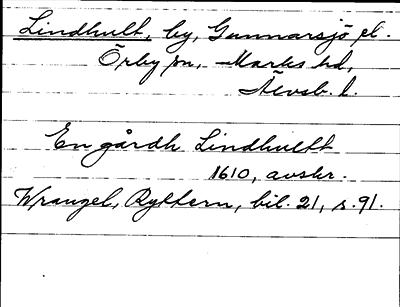 Lindhult, by, Gunnarsjö st.
Örby sn, Marks hd,
Älvsb. l.
En gårdh Lindhultt
1610, avskr.
Wrangel, Ryttern, bil. 21, s. 91.